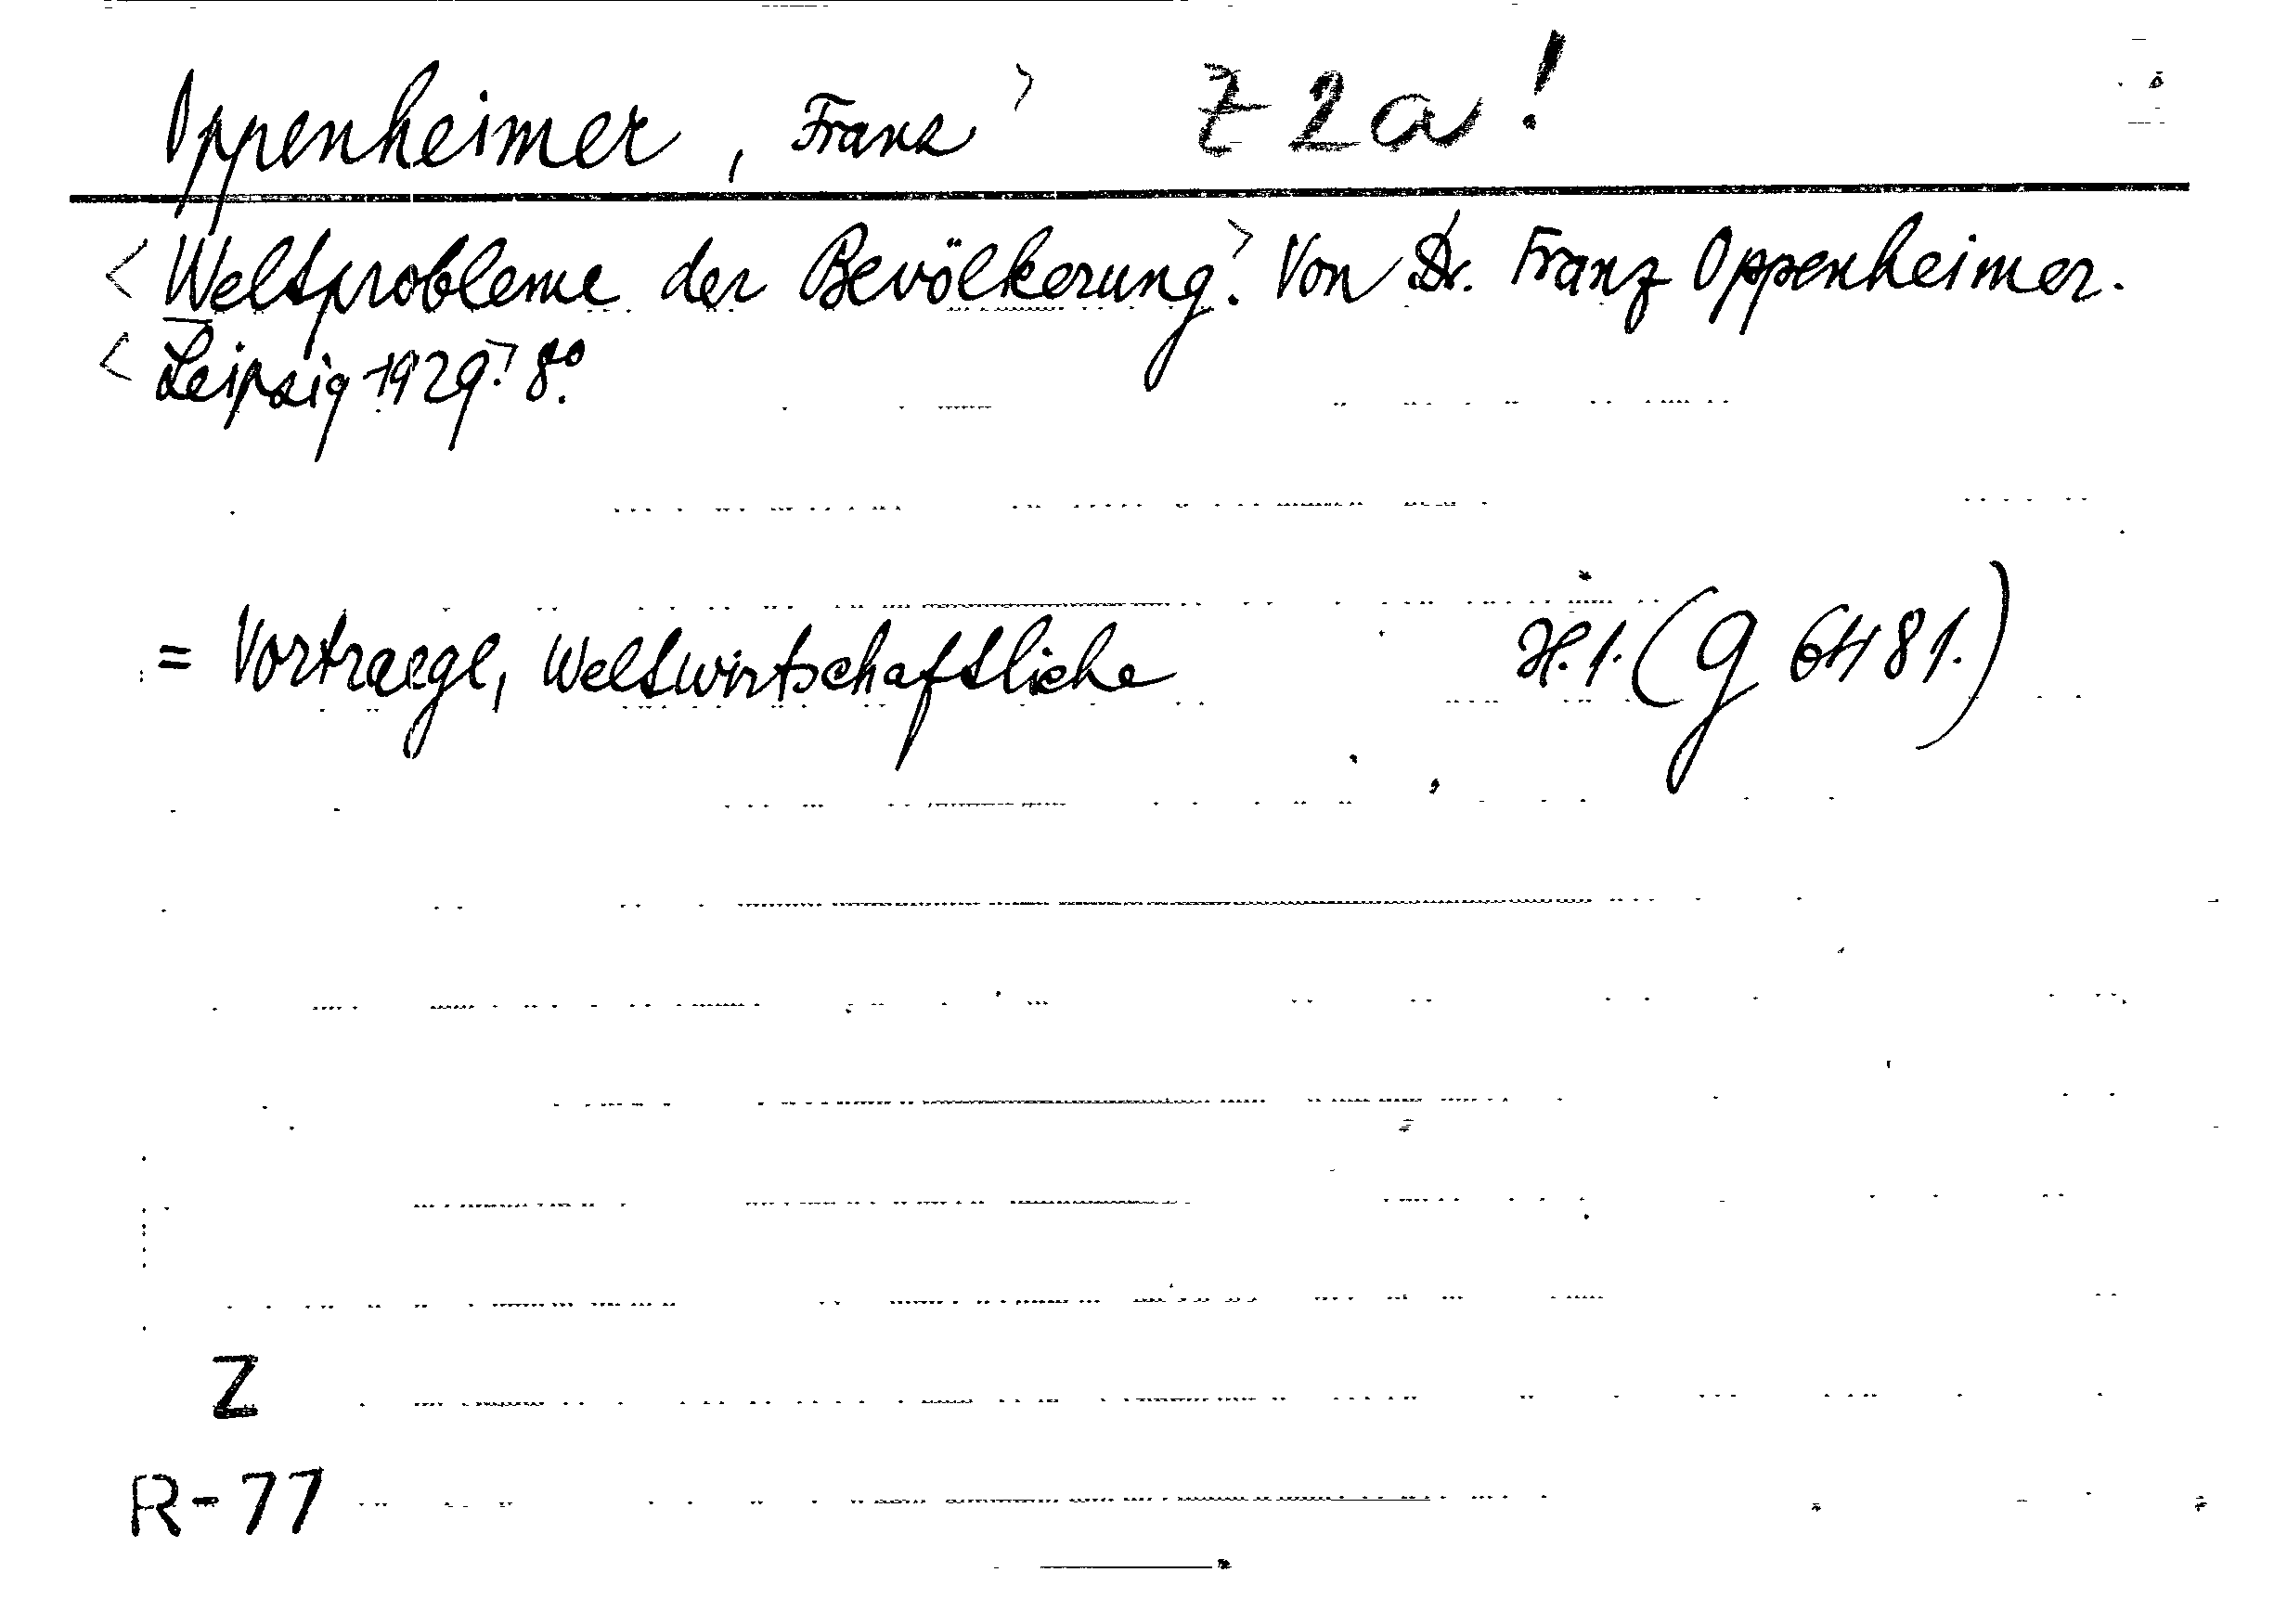 Oppenheimer, Franz> Z 2 a!
<Weltprobleme der Bevölkerung.> Von Dr. Franz Oppenheimer.
<Leipzig 1929.> 8°.
= Vortraege, Weltwirtschaftliche H. 1. (g 6481.)
Z
R-77